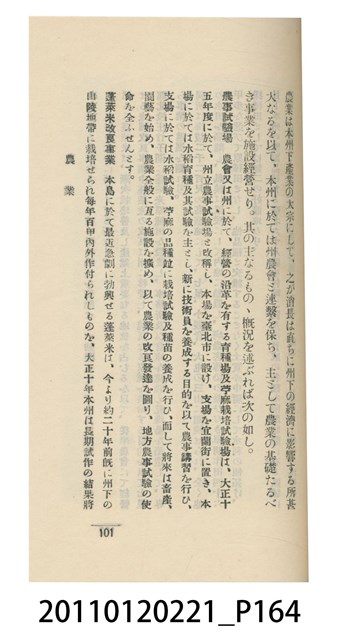 農業は本州下產業の大宗にして、之が消長は直ちに州下の經濟に影響する所甚
大なるを以て、本州に於ては州農會と連繫を保ち、主として農業の基礎たるべ
き事業を施設經營せり。其の主なるものゝ慨況を述ぶれば次の如し。
農事試驗場 農會又は州に於て、經營の沿革を有する育種場及苧麻栽培試驗場は、大正十
五年度に於て、州立農事試驗場と改稱し、本場を臺北市に設け、支場を宜蘭街に置き、本
場に於ては水稻育種及其試驗を主とし、新に技術員を養成する目的を以て農事講習を行ひ、
支場に於ては水稻試驗、苧麻の品種竝に栽培試驗及種苗の養成を行ひ、而して將來は畜產、
園藝を始め、農業全般に亙る施設を擴め、以て農業の改良發達を圖り、地方農事試驗の使
命を全ふせんとす。
蓬萊米改良事業 本島に於て最近急劇に勃興せる蓬萊米は、今より約二十年前旣に州下の
山陵地帶に栽培せられ每年百甲內外作付られしものを、大正十年本州は長期試作の結果將
農業
101
20110120221_P164